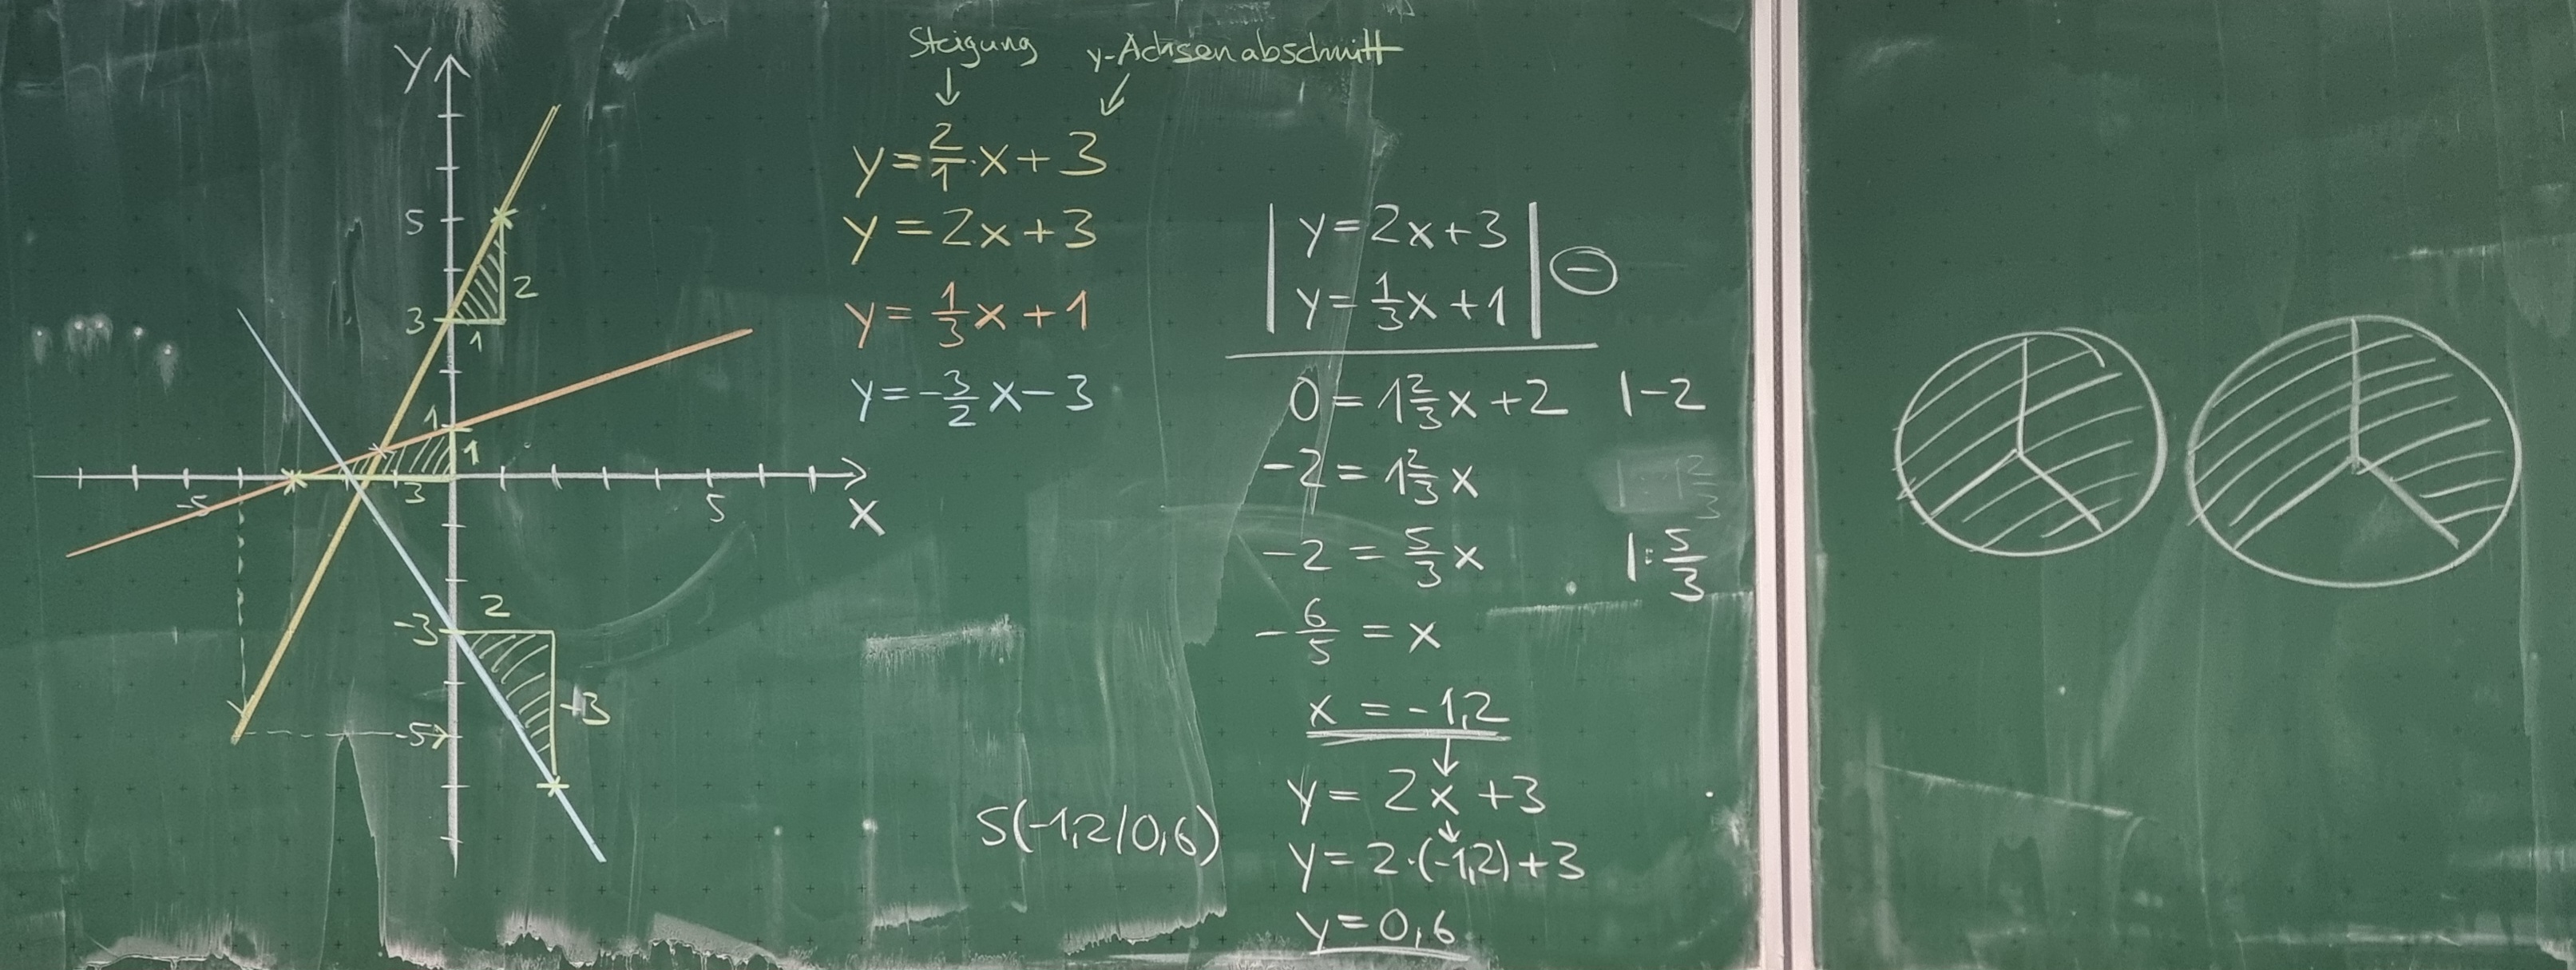 Y
5
3
2
1
1
1
3
-5
5
X
-3
2
+3
-5
Steigung y-Achsenabschnitt
y = 2/1 · x + 3
y = 2x + 3
y = 1/3 x + 1
y = -3/2 x - 3
| y = 2x + 3 |
| y = 1/3 x + 1 | ⊖
0 = 1 2/3 x + 2 | -2
-2 = 1 2/3 x | : 1 2/3
-2 = 5/3 x | : 5/3
- 6/5 = x
x = -1,2
y = 2x + 3
y = 2 · (-1,2) + 3
y = 0,6
S(-1,2/0,6)